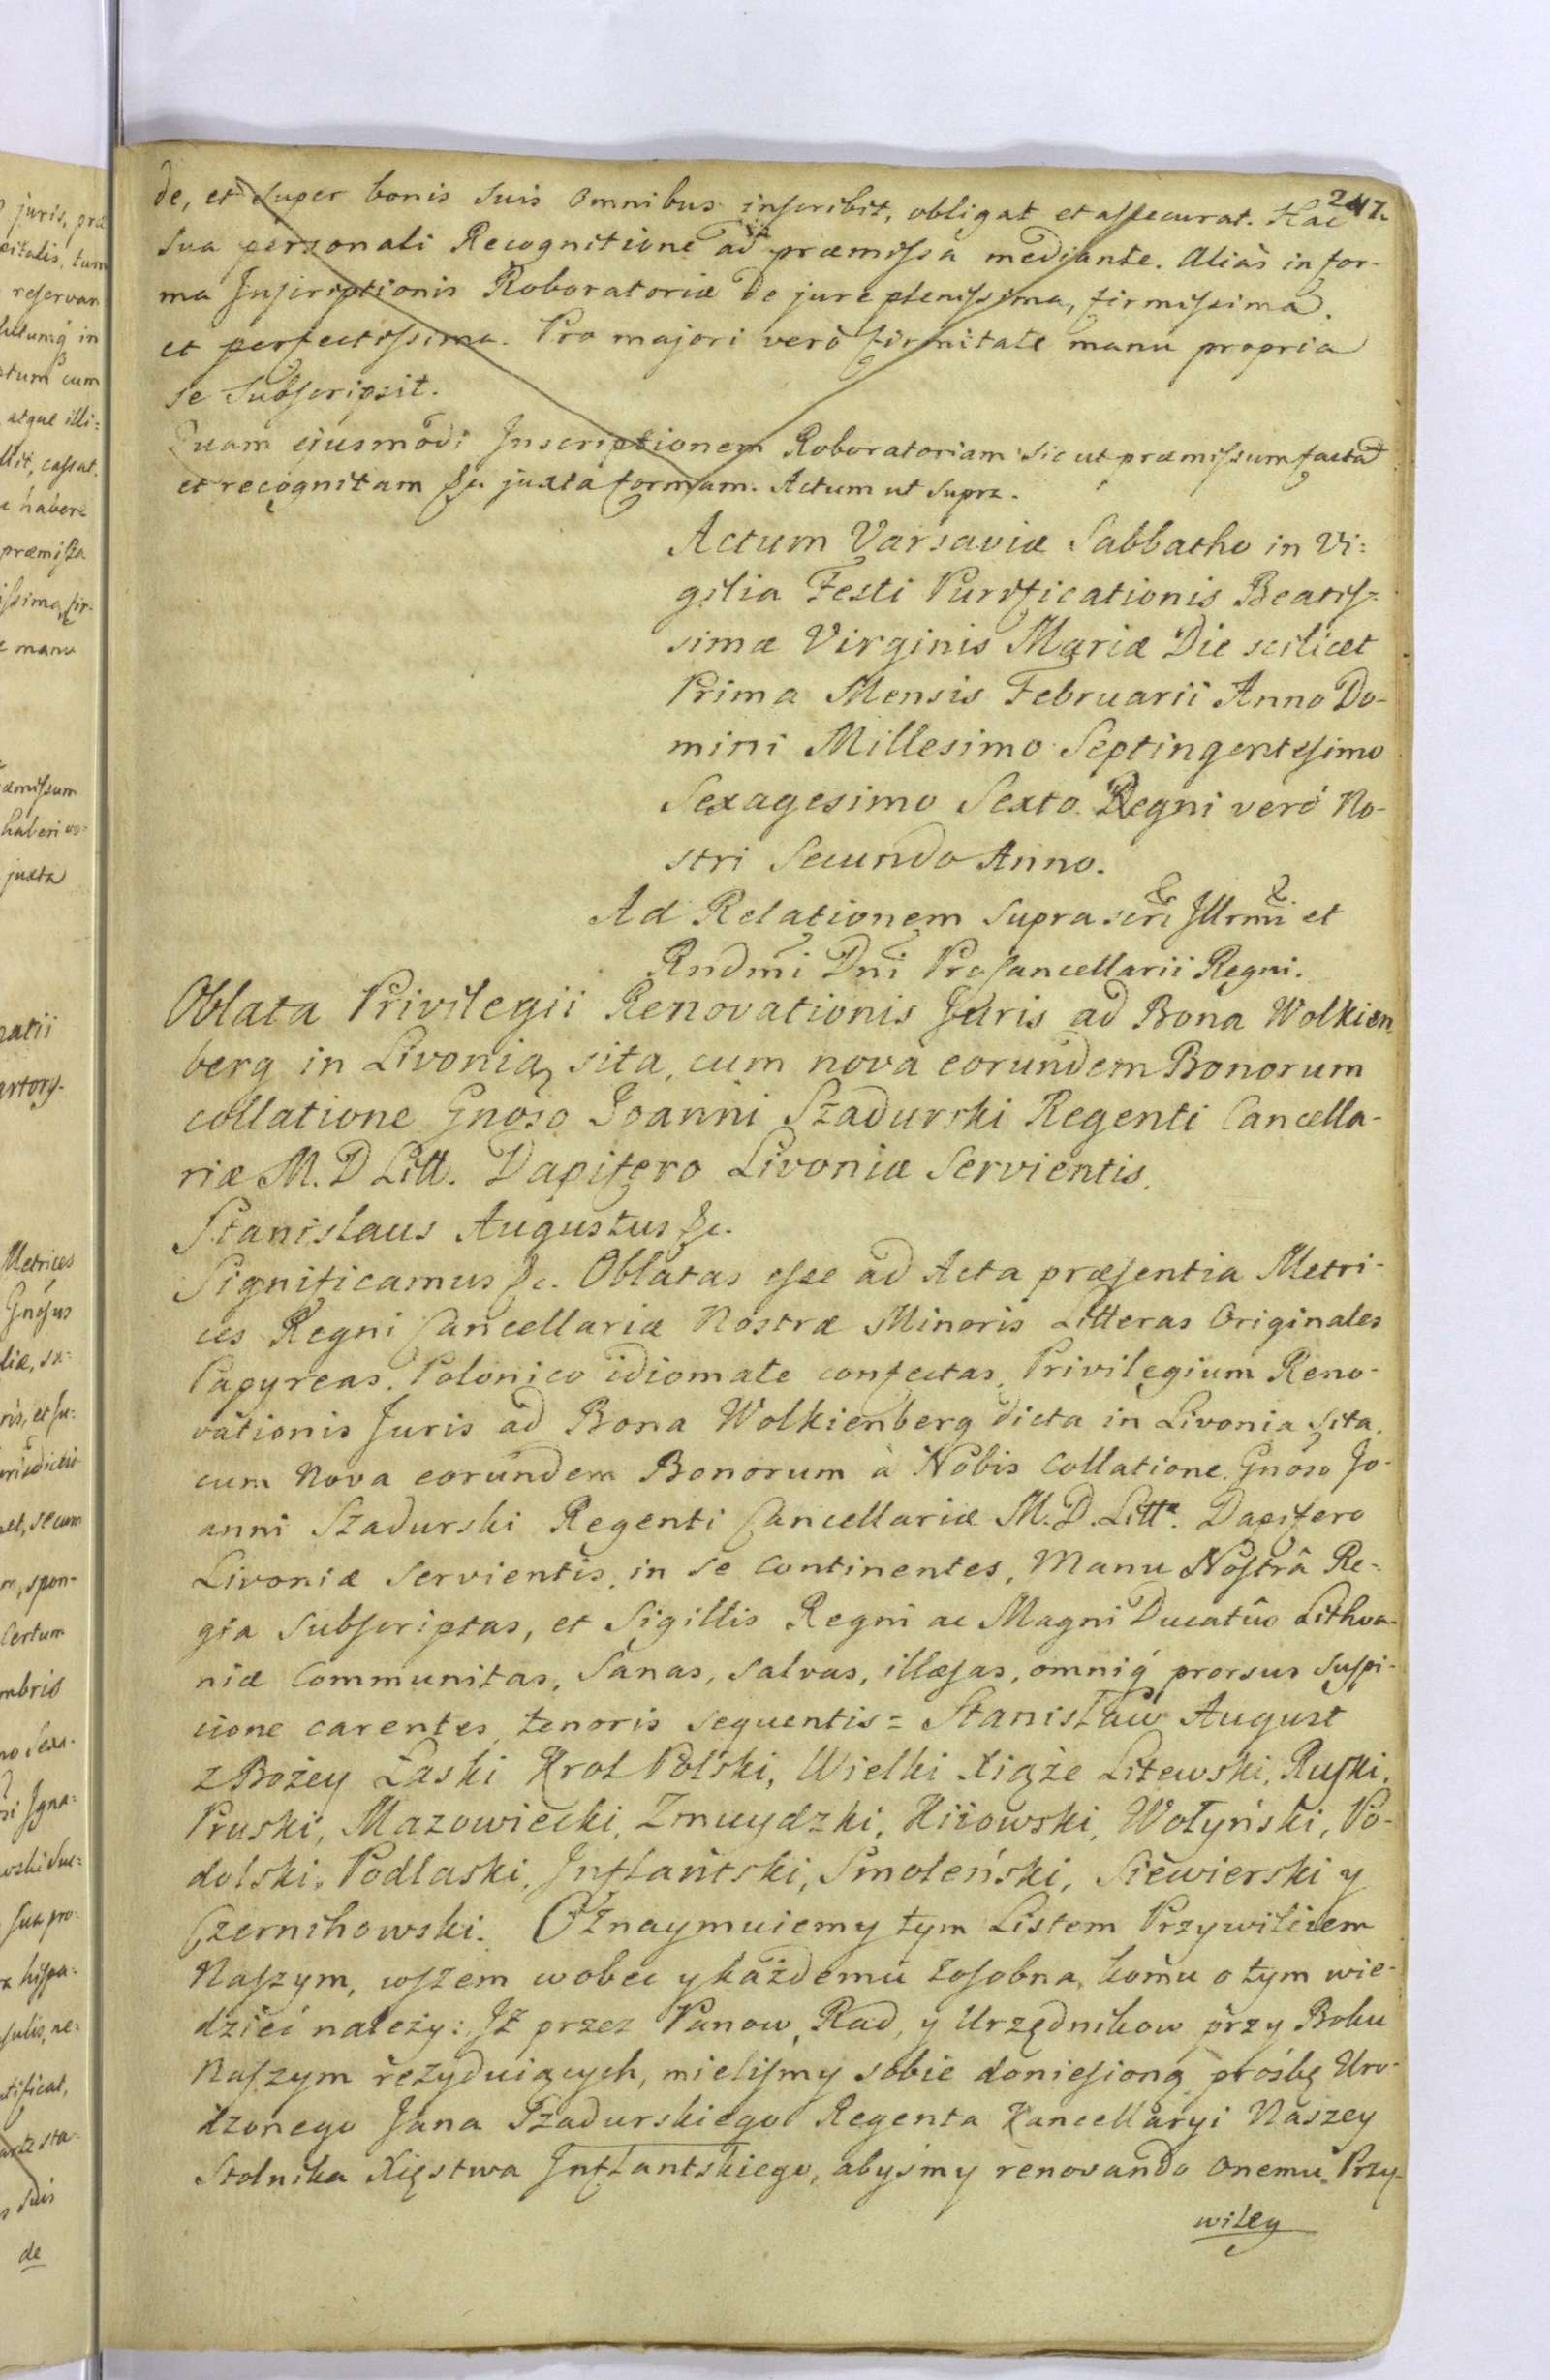 247.
de, et super bonis suis omnibus inscribit, obligat et assecurat. Hac
sua personali Recognitione ad præmissa mediante. Alias in for-
ma Inscriptionis Roboratoriæ de jure plenissima, firmissima,
et perfectissima. Pro majori verò firmitate manu propria
se subscripsit.
Quam ejusmodi Inscriptionem Roboratoriam sic ut præmissum facta
et recognitam &c. juxta formam. Actum ut supra.
Actum Varsaviæ Sabbatho in Vi:
gilia Festi Purificationis Beatis-
simæ Virginis Mariæ Die scilicet
Prima Mensis Februarii Anno Do-
mini Millesimo Septingentesimo
Sexagesimo Sexto. Regni verò No-
stri Secundo Anno.
Ad Relationem supra scri Illrmi et
Rndmi Dni Procancellarii Regni.
Oblata Privilegii Renovationis Juris ad Bona Wolkien
berg in Livonia sita, cum nova eorundem Bonorum
collatione Gnoso Joanni Szadurski Regenti Cancella-
riæ M. D Litt. Dapifero Livoniæ Servientis.
Stanislaus Augustus &c.
Significamus &c. Oblatas esse ad Acta præsentia Metri-
ces Regni Cancellariæ Nostræ Minoris Litteras Originales
Papyreas. Polonico idiomate confectas, Privilegium Reno-
vationis Juris ad Bona Wolkienberg dicta in Livonia sita,
cum Nova eorundem Bonorum à Nobis Collatione Gnoso Jo-
anni Szadurski Regenti Cancellariæ M. D. Litt. Dapifero
Livoniæ servientis, in se continentes, Manu Nostrâ Re-
gia subscriptas, et Sigillis Regni ac Magni Ducatûs Lithva-
niæ Communitas, Sanas, salvas, illæsas, omniq́ prorsus suspi-
cione carentes, tenoris sequentis = Stanisław August
z Bożey Łaski Krol Polski, Wielki Xiąże Litewski, Ruski,
Pruski, Mazowiecki, Zmuydzki, Kiiowski, Wołyński, Po-
dolski, Podlaski, Inflantski, Smoleński, Siewierski y
Czernihowski. Oznaymuiemy tym Listem Przywileiem
Naszym, wszem wobec y każdemu zosobna, komu o tym wie-
dzieć należy: Iż przez Panow, Rad, y Urzędnikow przy Boku
Naszym rezyduiących, mieliśmy sobie doniesioną prośbę Uro-
dzonego Jana Szadurskiego Regenta Kancellaryi Naszey
Stolnika Xięstwa Inflantskiego, abyśmy renovando onemu Przy-
wiley
juris, præ
reservan
in
cum
atque illi=
cassat.
habere
præmissa
manu
juxta
Metrices
Gnosus
et su:
secum
spon-
Certum
sua pro:
de